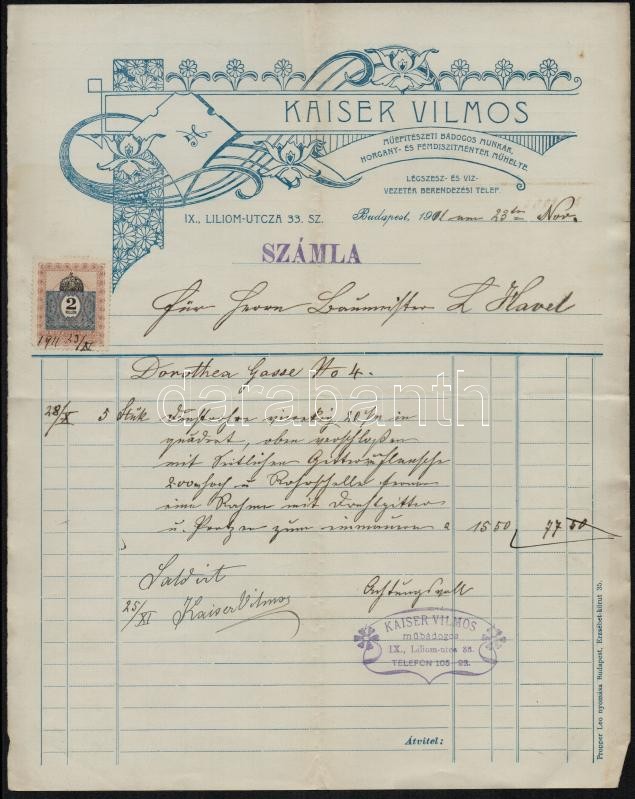 KAISER VILMOS
MŰÉPITÉSZETI BÁDOGOS MUNKÁK,
HORGANY- ÉS FÉMDISZITMÉNYEK MŰHELYE.
LÉGSZESZ- ÉS VIZ-
VEZETÉK BERENDEZÉSI TELEP.
IX., LILIOM-UTCZA 33. SZ.
Budapest, 1911 am 23ten Nov.
SZÁMLA
2
1911 23/XI
Für Herrn Baumeister L Havel
Dorothea Gasse No 4.
28/X 5 Stük viereckig in
quadrat, oben verschloßen
mit Seitlichen
hoch u Rohrschelle ferner
eine Rahme mit Drahtgitter
u. zum einmauern a 15 50 77 50
darabanth
Saldirt
25/XI Kaiser Vilmos
Achtungsvoll
KAISER VILMOS
műbádogos
IX., Liliom-utca 33.
TELEFON 105-23.
Átvitel:
Propper Leo nyomása Budapest, Erzsébet-körut 35.